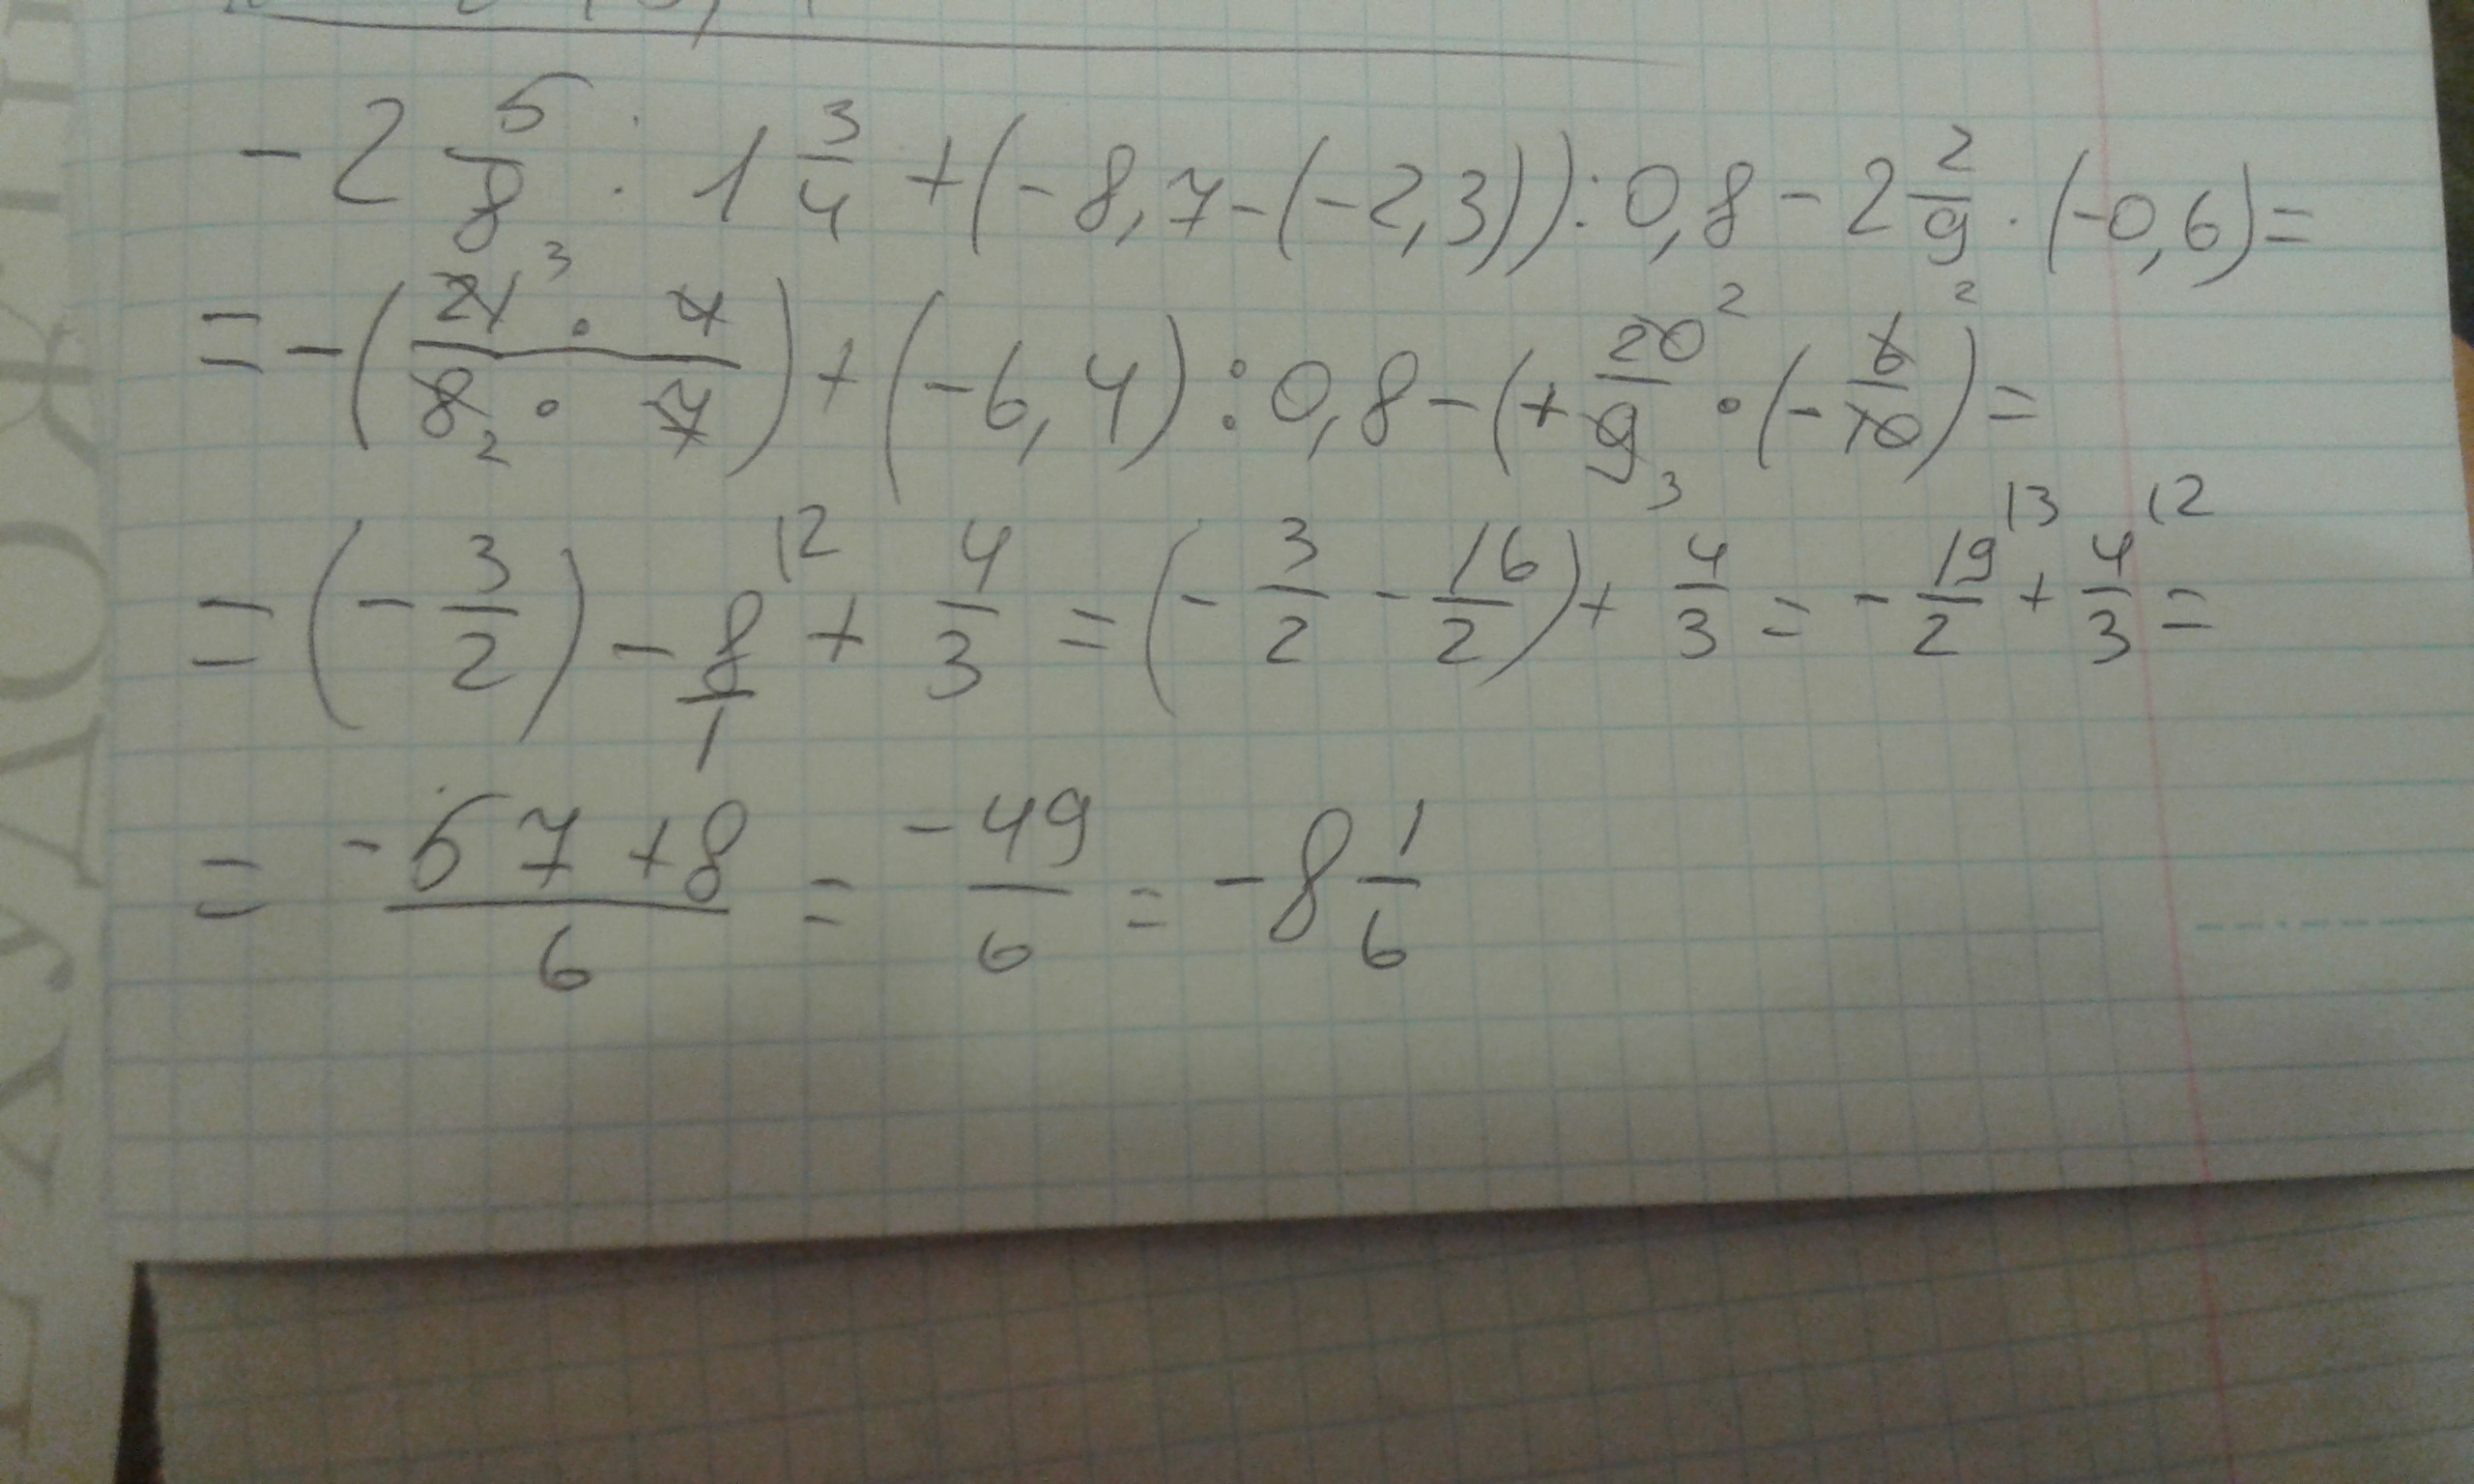 -2 5/8 : 1 3/4 + (-8,7-(-2,3)) : 0,8 - 2 2/9 · (-0,6) =
= -(21³ · 4 / 8₂ · 7) + (-6,4) : 0,8 - (+ 20²/9₃ · (- 6²/10) =
= (- 3/2) - 8/1 ⌈2 + 4/3 = (- 3/2 - 16/2) + 4/3 = - 19/2 ⌈3 + 4/3 ⌈2 =
= -57+8 / 6 = -49/6 = -8 1/6